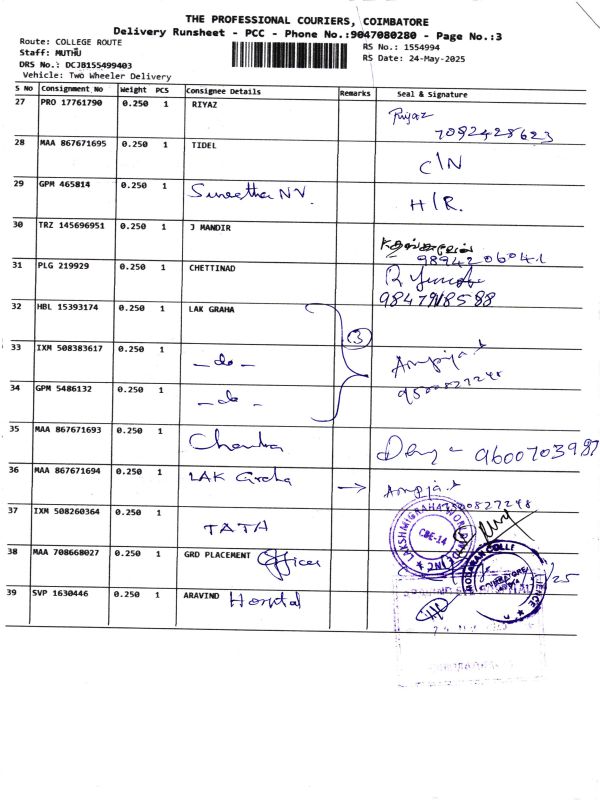 THE PROFESSIONAL COURIERS, COIMBATORE
Delivery Runsheet - PCC - Phone No.:9047080280 - Page No.:3
Route: COLLEGE ROUTE
RS No.: 1554994
Staff: MUTHU
RS Date: 24-May-2025
DRS No.: DCJB155499403
Vehicle: Two Wheeler Delivery
S No Consignment No Weight PCS Consignee Details Remarks Seal & Signature
27 PRO 17761790 0.250 1 RIYAZ Riyaz
7092428623
28 MAA 867671695 0.250 1 TIDEL C/N
29 GPM 465814 0.250 1 Suneetha NV. H/R.
30 TRZ 145696951 0.250 1 J MANDIR
9894206041
31 PLG 219929 0.250 1 CHETTINAD R
9847918588
32 HBL 15393174 0.250 1 LAK GRAHA
3
33 IXM 508383617 0.250 1 - do -
9500827248
34 GPM 5486132 0.250 1 - do -
35 MAA 867671693 0.250 1 Chandra 9600703987
36 MAA 867671694 0.250 1 LAK Graha
9500827248
37 IXM 508260364 0.250 1 TATA
LAKSHMIGRAHA WORLD
CBE-14
38 MAA 708668027 0.250 1 GRD PLACEMENT Officer
39 SVP 1630446 0.250 1 ARAVIND Hospital